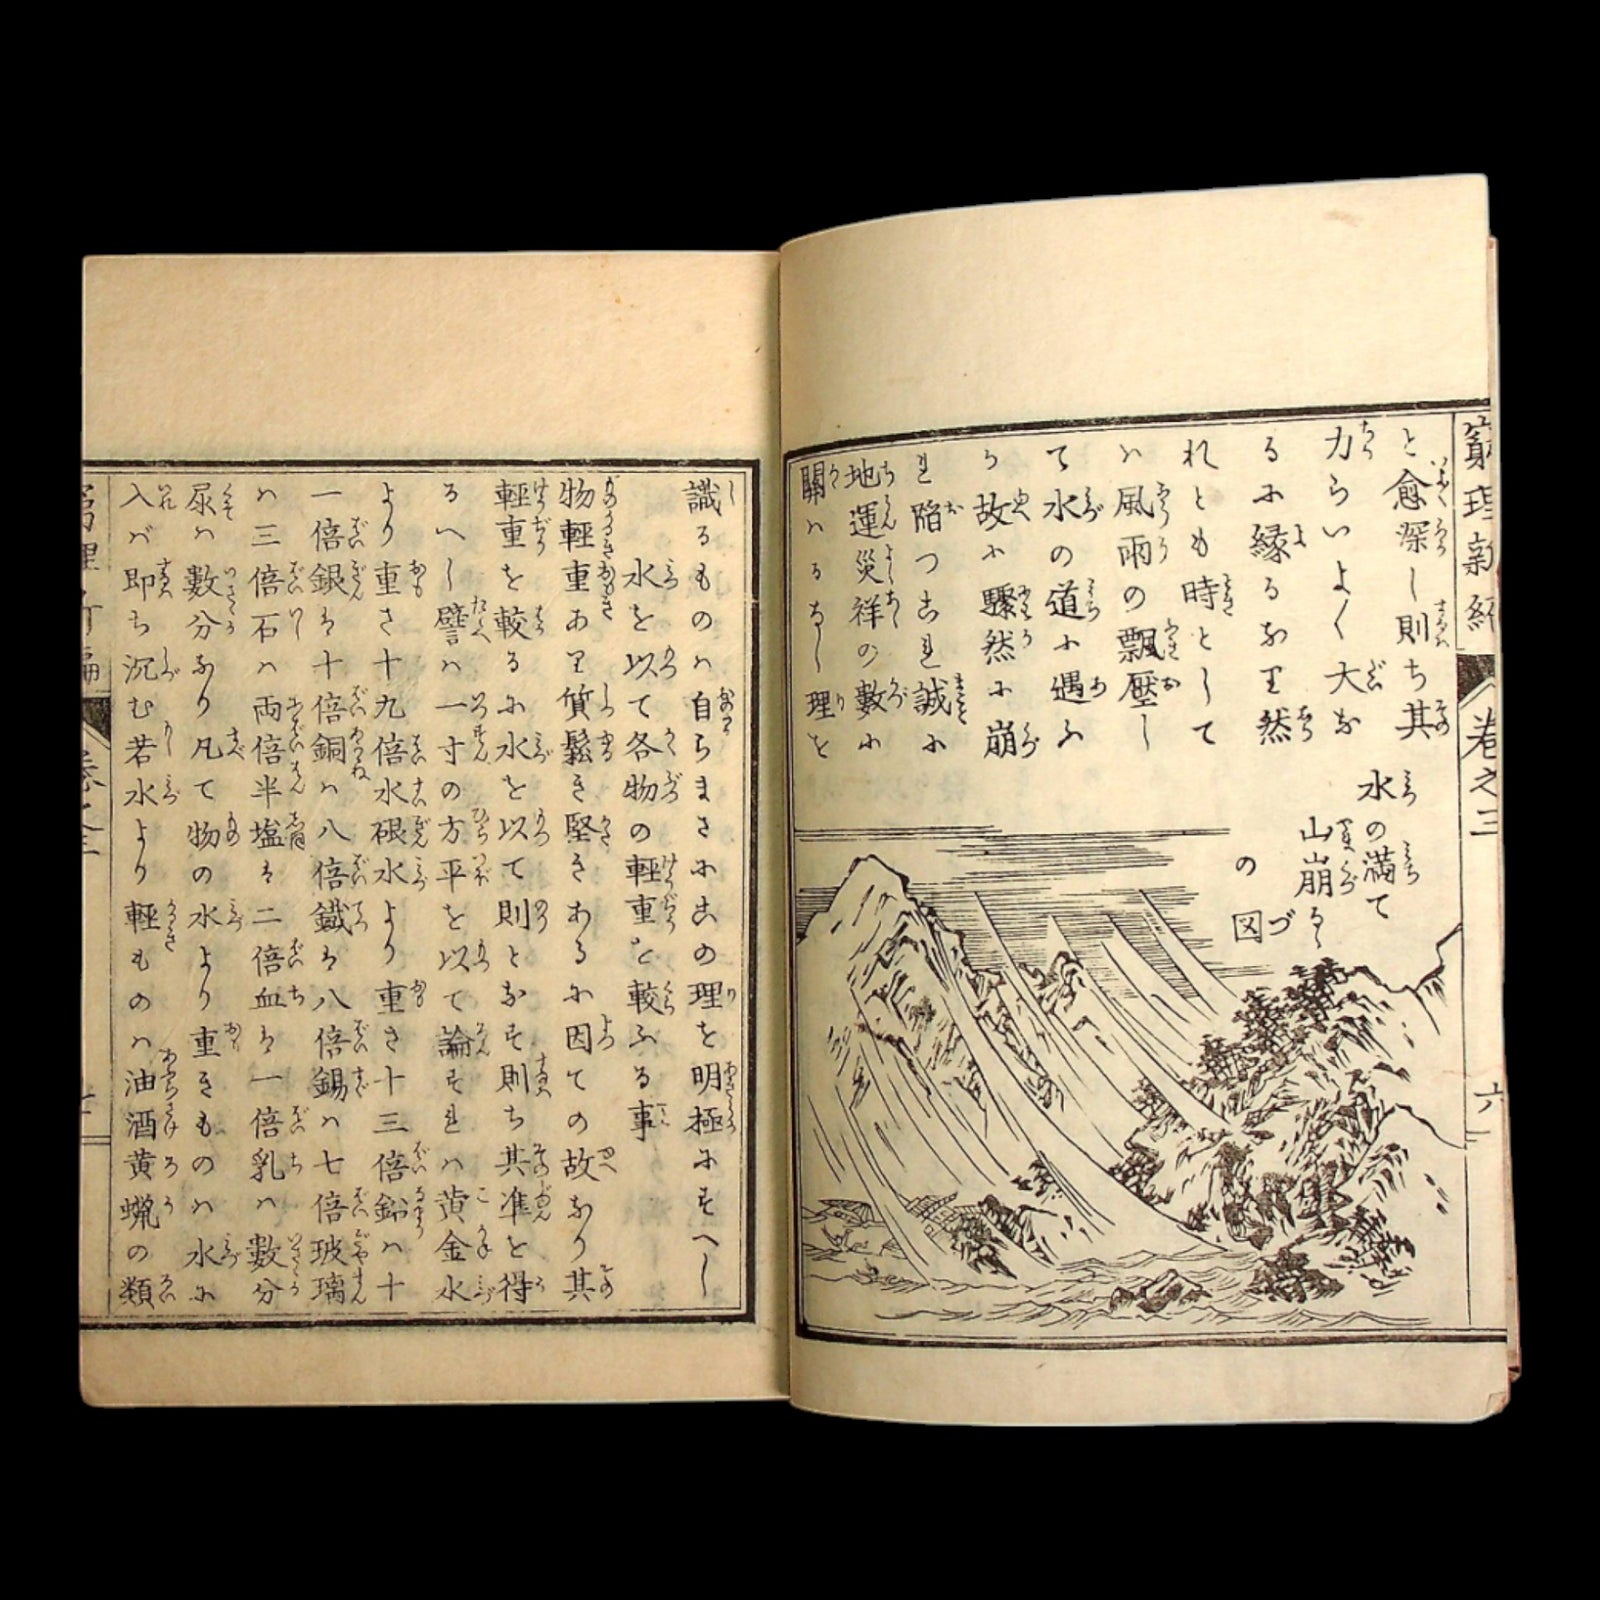 窮理新編
卷之三
六
と愈深し則ち其
力らいよ〱大な
るに縁るなり然
れとも時として
ハ風雨の飄壓し
て水の道に遇ふ
う故に驟然に崩
れ陷つこれ誠に
地運災祥の數に
關ハるなし理を
水の満て
山崩るゝ
の図
識るものハ自ちまさにこの理を明極にすへし
水を以て各物の輕重を較ふる事
物輕重あり質鬆き堅きあるに因ての故なり其
輕重を較るに水を以て則となす則ち其準を得
るへし譬ハ一寸の方平を以て論すれハ黄金水
より重さ十九倍水硍水より重さ十三倍鉛ハ十
一倍銀ハ十倍銅ハ八倍鐵ハ八倍錫ハ七倍玻璃
ハ三倍石ハ両倍半塩ハ二倍血ハ一倍乳ハ數分
尿ハ數分なり凡て物の水より重きものハ水に
入バ即ち沉む若水より輕ものハ油酒黄蝋の類